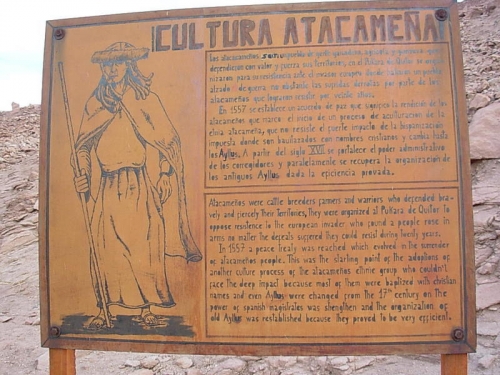 CULTURA ATACAMEÑA
Los atacameños son un pueblo de
defendieron con valor y fuerza sus territorios, en el Pukara
nizaron para su resistencia ante el invasor europeo donde hallaron un pueblo
alzado de guerra, no obstante las sufridas derrotas por parte de los
atacameños que lograron resistir por veinte años.
En 1557 se establece un acuerdo de paz que significa la rendición de los
atacameños que marca el inicio de un proceso de aculturación de la
etnia atacameña, que no resiste el fuerte impacto de la hispanización
impuesta donde son bautizados con nombres cristianos y cambia hasta
los Ayllus. A partir del siglo XVII se fortalece el poder administrativo
de los corregidores y paralelamente se recupera la organización de
los antiguos Ayllus, dada la eficiencia probada.
Atacameños were cattle breeders farmers and warriors who defended bra-
vely and fiercely Their Territories, They were organized at Pukara de Quitor to
oppose resistence to the european invader who found a people rose in
arms no matter the defeats suffered they could resist during twenty years.
In 1557 a peace treaty was reached which evolved in the surrender
of atacameños people. This was the starting point of the adoptions of
another culture process of the atacameños ethnic group who couldn't
face the deep impact because most of them were baptized with christian
names and even Ayllus were changed from the 17th century on the
power of spanish magistrates was strengthen and the organization of
old Ayllus was restablished because they proved to be very efficient.